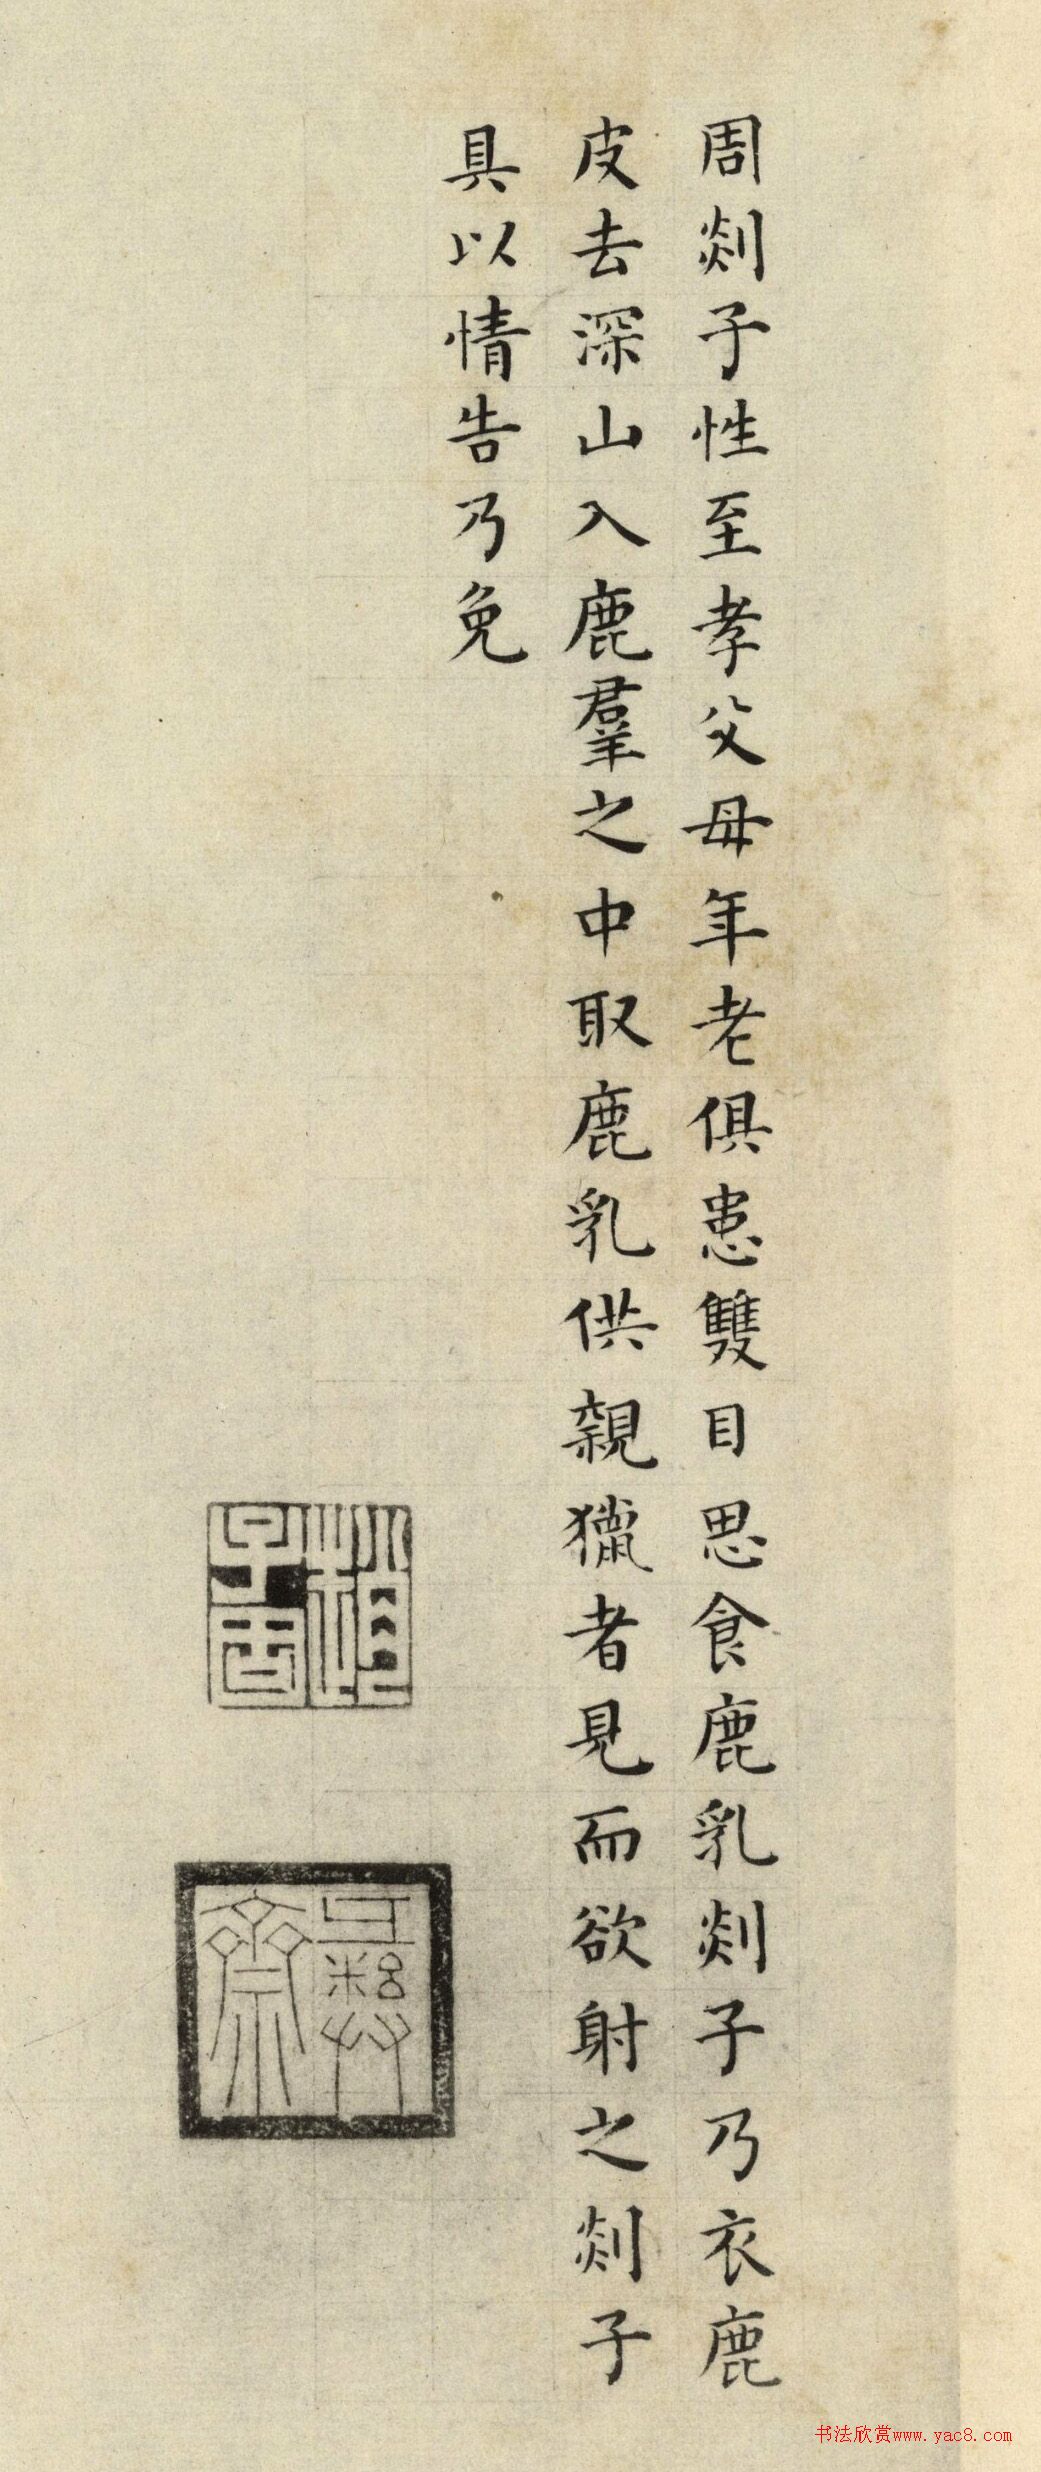 周剡子性至孝父母年老俱患雙目思食鹿乳剡子乃衣鹿
皮去深山入鹿羣之中取鹿乳供親獵者見而欲射之剡子
具以情告乃免
彝齋
书法欣赏www.yac8.com